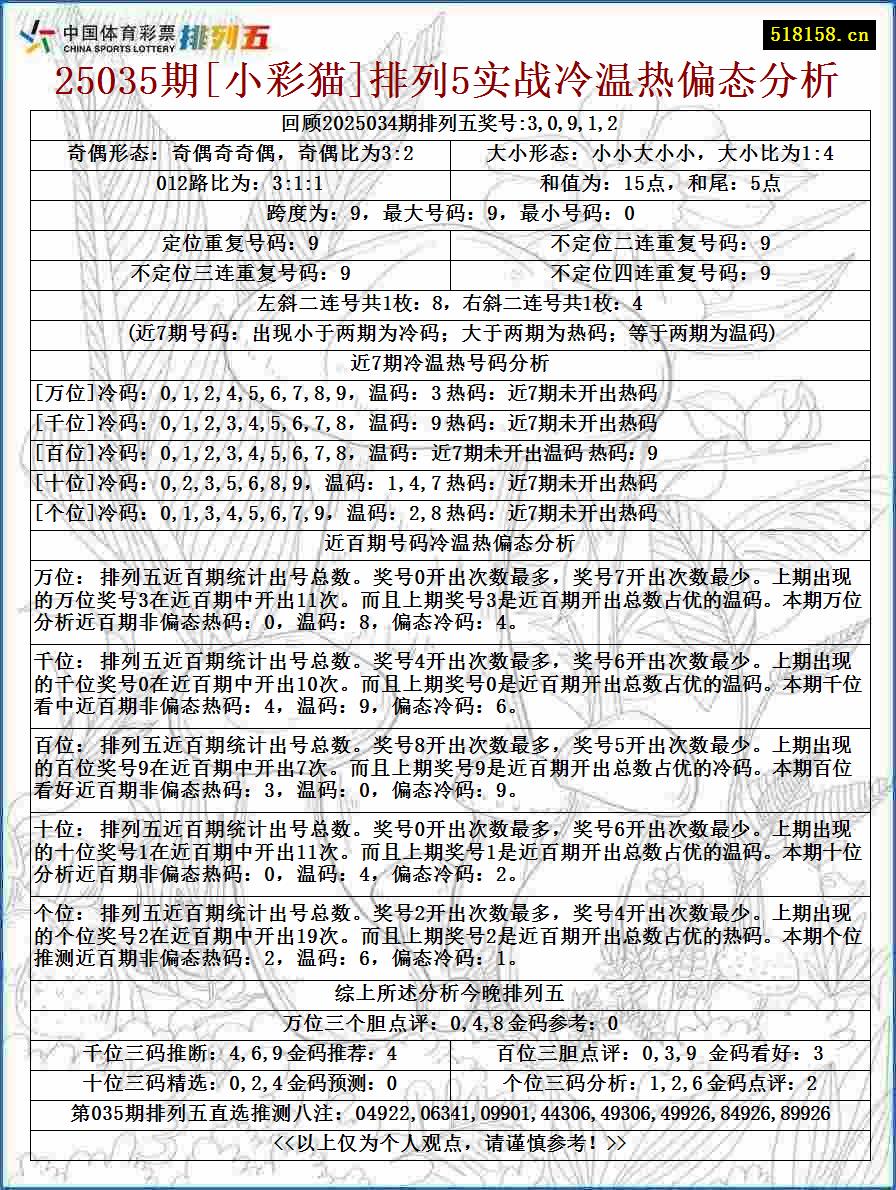 中国体育彩票 排列五
CHINA SPORTS LOTTERY
518158.cn
25035期[小彩猫]排列5实战冷温热偏态分析
回顾2025034期排列五奖号:3,0,9,1,2
奇偶形态：奇偶奇奇偶，奇偶比为3:2
大小形态：小小大小小，大小比为1:4
012路比为：3:1:1
和值为：15点，和尾：5点
跨度为：9，最大号码：9，最小号码：0
定位重复号码：9
不定位二连重复号码：9
不定位三连重复号码：9
不定位四连重复号码：9
左斜二连号共1枚：8，右斜二连号共1枚：4
(近7期号码：出现小于两期为冷码；大于两期为热码；等于两期为温码)
近7期冷温热号码分析
[万位]冷码：0,1,2,4,5,6,7,8,9，温码：3 热码：近7期未开出热码
[千位]冷码：0,1,2,3,4,5,6,7,8，温码：9 热码：近7期未开出热码
[百位]冷码：0,1,2,3,4,5,6,7,8，温码：近7期未开出温码 热码：9
[十位]冷码：0,2,3,5,6,8,9，温码：1,4,7 热码：近7期未开出热码
[个位]冷码：0,1,3,4,5,6,7,9，温码：2,8 热码：近7期未开出热码
近百期号码冷温热偏态分析
万位： 排列五近百期统计出号总数。奖号0开出次数最多，奖号7开出次数最少。上期出现
的万位奖号3在近百期中开出11次。而且上期奖号3是近百期开出总数占优的温码。本期万位
分析近百期非偏态热码：0，温码：8，偏态冷码：4。
千位： 排列五近百期统计出号总数。奖号4开出次数最多，奖号6开出次数最少。上期出现
的千位奖号0在近百期中开出10次。而且上期奖号0是近百期开出总数占优的温码。本期千位
看中近百期非偏态热码：4，温码：9，偏态冷码：6。
百位： 排列五近百期统计出号总数。奖号8开出次数最多，奖号5开出次数最少。上期出现
的百位奖号9在近百期中开出7次。而且上期奖号9是近百期开出总数占优的冷码。本期百位
看好近百期非偏态热码：3，温码：0，偏态冷码：9。
十位： 排列五近百期统计出号总数。奖号0开出次数最多，奖号6开出次数最少。上期出现
的十位奖号1在近百期中开出11次。而且上期奖号1是近百期开出总数占优的温码。本期十位
分析近百期非偏态热码：0，温码：4，偏态冷码：2。
个位： 排列五近百期统计出号总数。奖号2开出次数最多，奖号4开出次数最少。上期出现
的个位奖号2在近百期中开出19次。而且上期奖号2是近百期开出总数占优的热码。本期个位
推测近百期非偏态热码：2，温码：6，偏态冷码：1。
综上所述分析今晚排列五
万位三个胆点评：0,4,8 金码参考：0
千位三码推断：4,6,9 金码推荐：4
百位三胆点评：0,3,9 金码看好：3
十位三码精选：0,2,4 金码预测：0
个位三码分析：1,2,6 金码点评：2
第035期排列五直选推测八注：04922,06341,09901,44306,49306,49926,84926,89926
<<以上仅为个人观点，请谨慎参考！>>